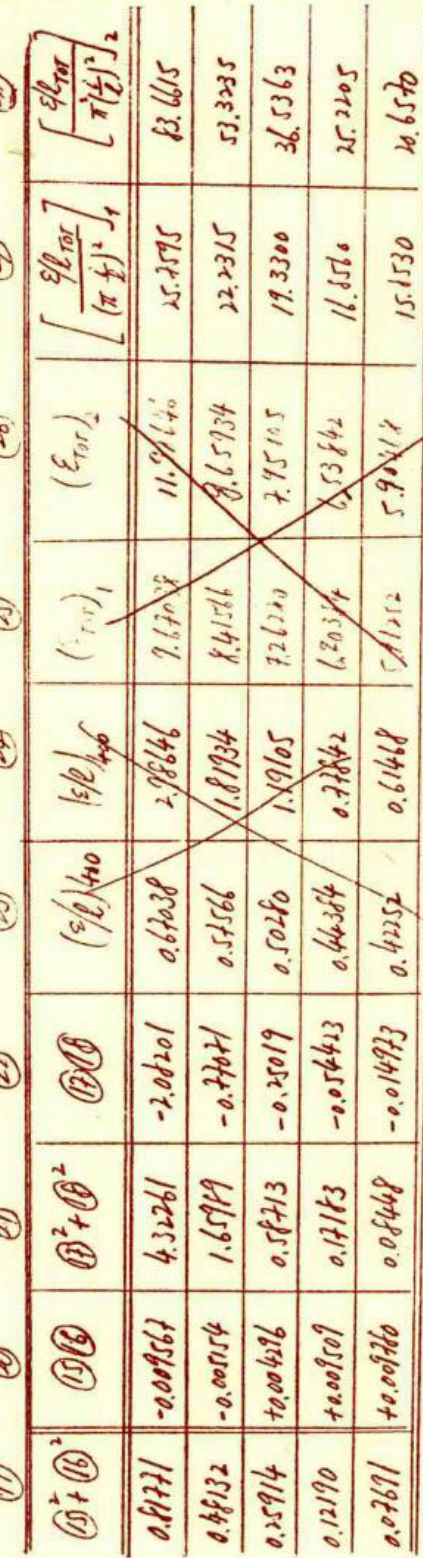 (15)² + (16)² | (15)(16) | (17)² + (18)² | (17)(18) | (ε/l)t=0 | (ε/l)t=0 | (εTOT)1 | (εTOT)2 | [ε/l TOT / (π t/l)²]1 | [ε/l TOT / π²(t/l)²]2
0.81771 | -0.009567 | 4.32261 | -2.08201 | 0.67038 | 2.98646 | 9.67038 | | 25.7595 | 83.6615
0.48132 | -0.005154 | 1.65989 | -0.77071 | 0.57566 | 1.81934 | 8.41566 | 8.65934 | 22.2315 | 53.3235
0.25914 | +0.004296 | 0.58713 | -0.25019 | 0.50280 | 1.19105 | 7.26280 | 7.95105 | 19.3300 | 36.5363
0.12190 | +0.009509 | 0.17183 | -0.054423 | 0.44384 | 0.77842 | 6.20384 | 6.53842 | 16.8560 | 25.2205
0.07691 | +0.009760 | 0.08448 | -0.014973 | 0.42252 | 0.61468 | | | 15.8530 | 20.6570